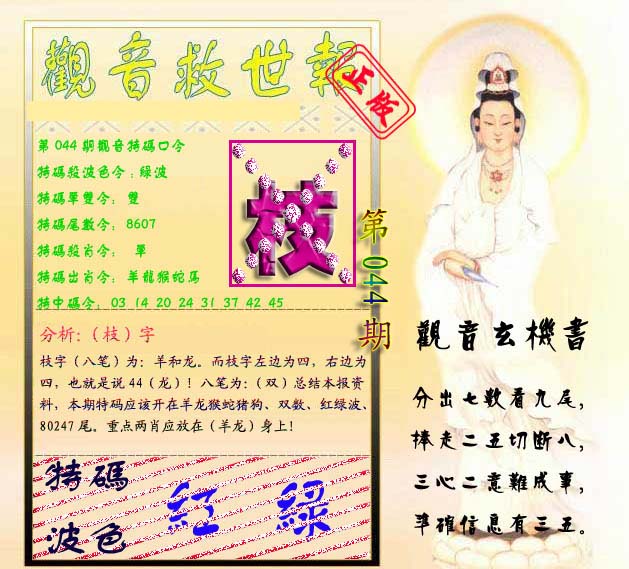 觀音救世報
正版
第044期觀音特碼口令
特碼殺波色令：綠波
特碼單雙令： 雙
特碼尾數令： 8607
特碼殺肖令： 單
特碼出肖令： 羊龍猴蛇馬
特中碼令： 03 14 20 24 31 37 42 45
枝
第044期
分析:（枝）字
枝字（八笔）为：羊和龙。而枝字左边为四，右边为
四，也就是说44（龙）！八笔为：（双）总结本报资
料，本期特码应该开在羊龙猴蛇猪狗、双数、红绿波、
80247尾。重点两肖应放在（羊龙）身上！
特碼
波色
紅 綠
觀音玄機書
分出七數看九尾，
捧走二五切断八，
三心二意難成事，
準確信息有三五。